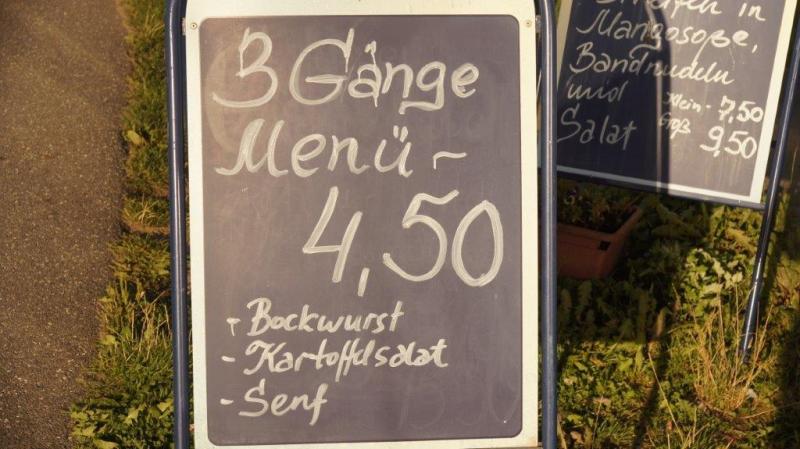 3 Gänge
Menü -
4,50
- Bockwurst
- Kartoffelsalat
- Senf
in
Mangosoße,
Bandnudeln
und
Klein - 7,50
Salat
Groß 9,50